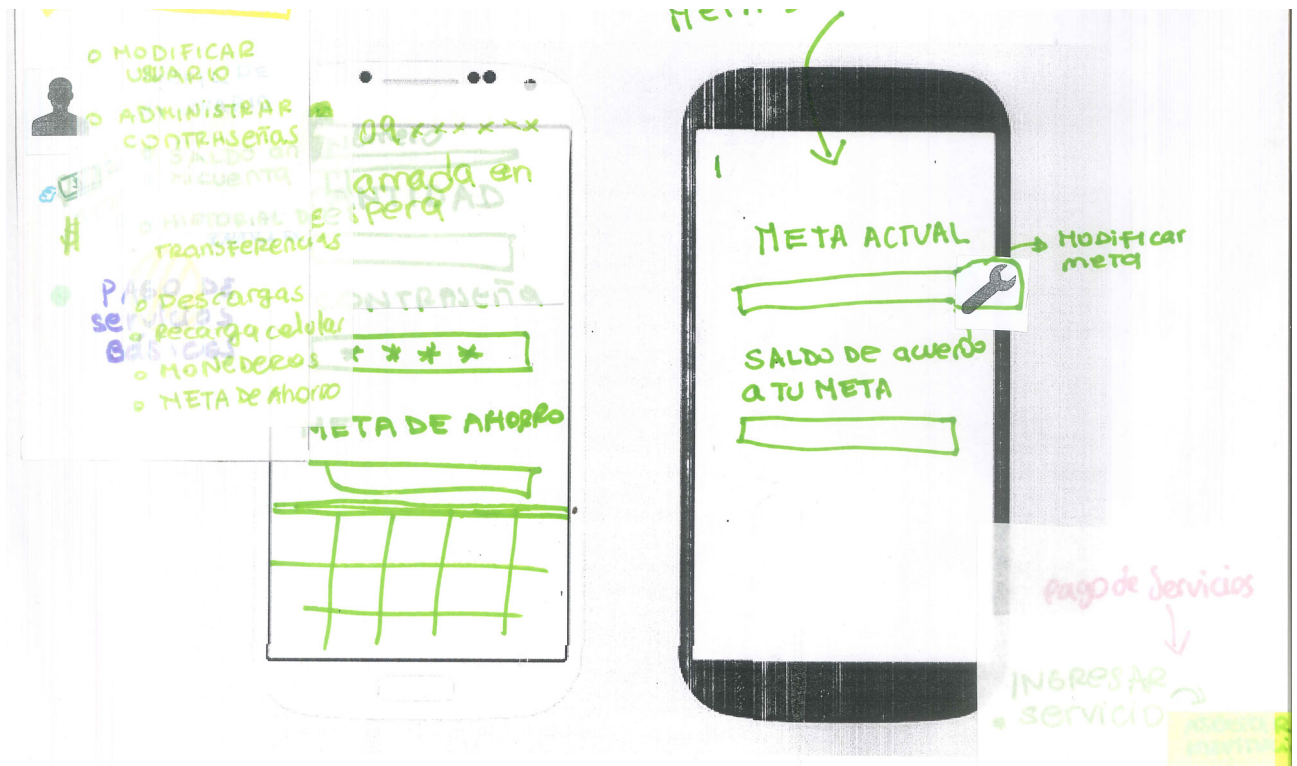 META
MODIFICAR
USUARIO
ADMINISTRAR
CONTRASEÑAS
SALDO en
mi cuenta
HISTORIAL DE
TRANSFERENCIAS
PAGO DE
servicios
Básicos
Descargas
Recarga celular
MONEDEROS
META DE Ahorro
09xxxxxx
amada en
pera
CONTRASEÑA
* * * *
META DE AHORRO
META ACTUAL
Modificar
meta
SALDO DE acuerdo
a TU META
Pago de Servicios
INGRESAR
servicio